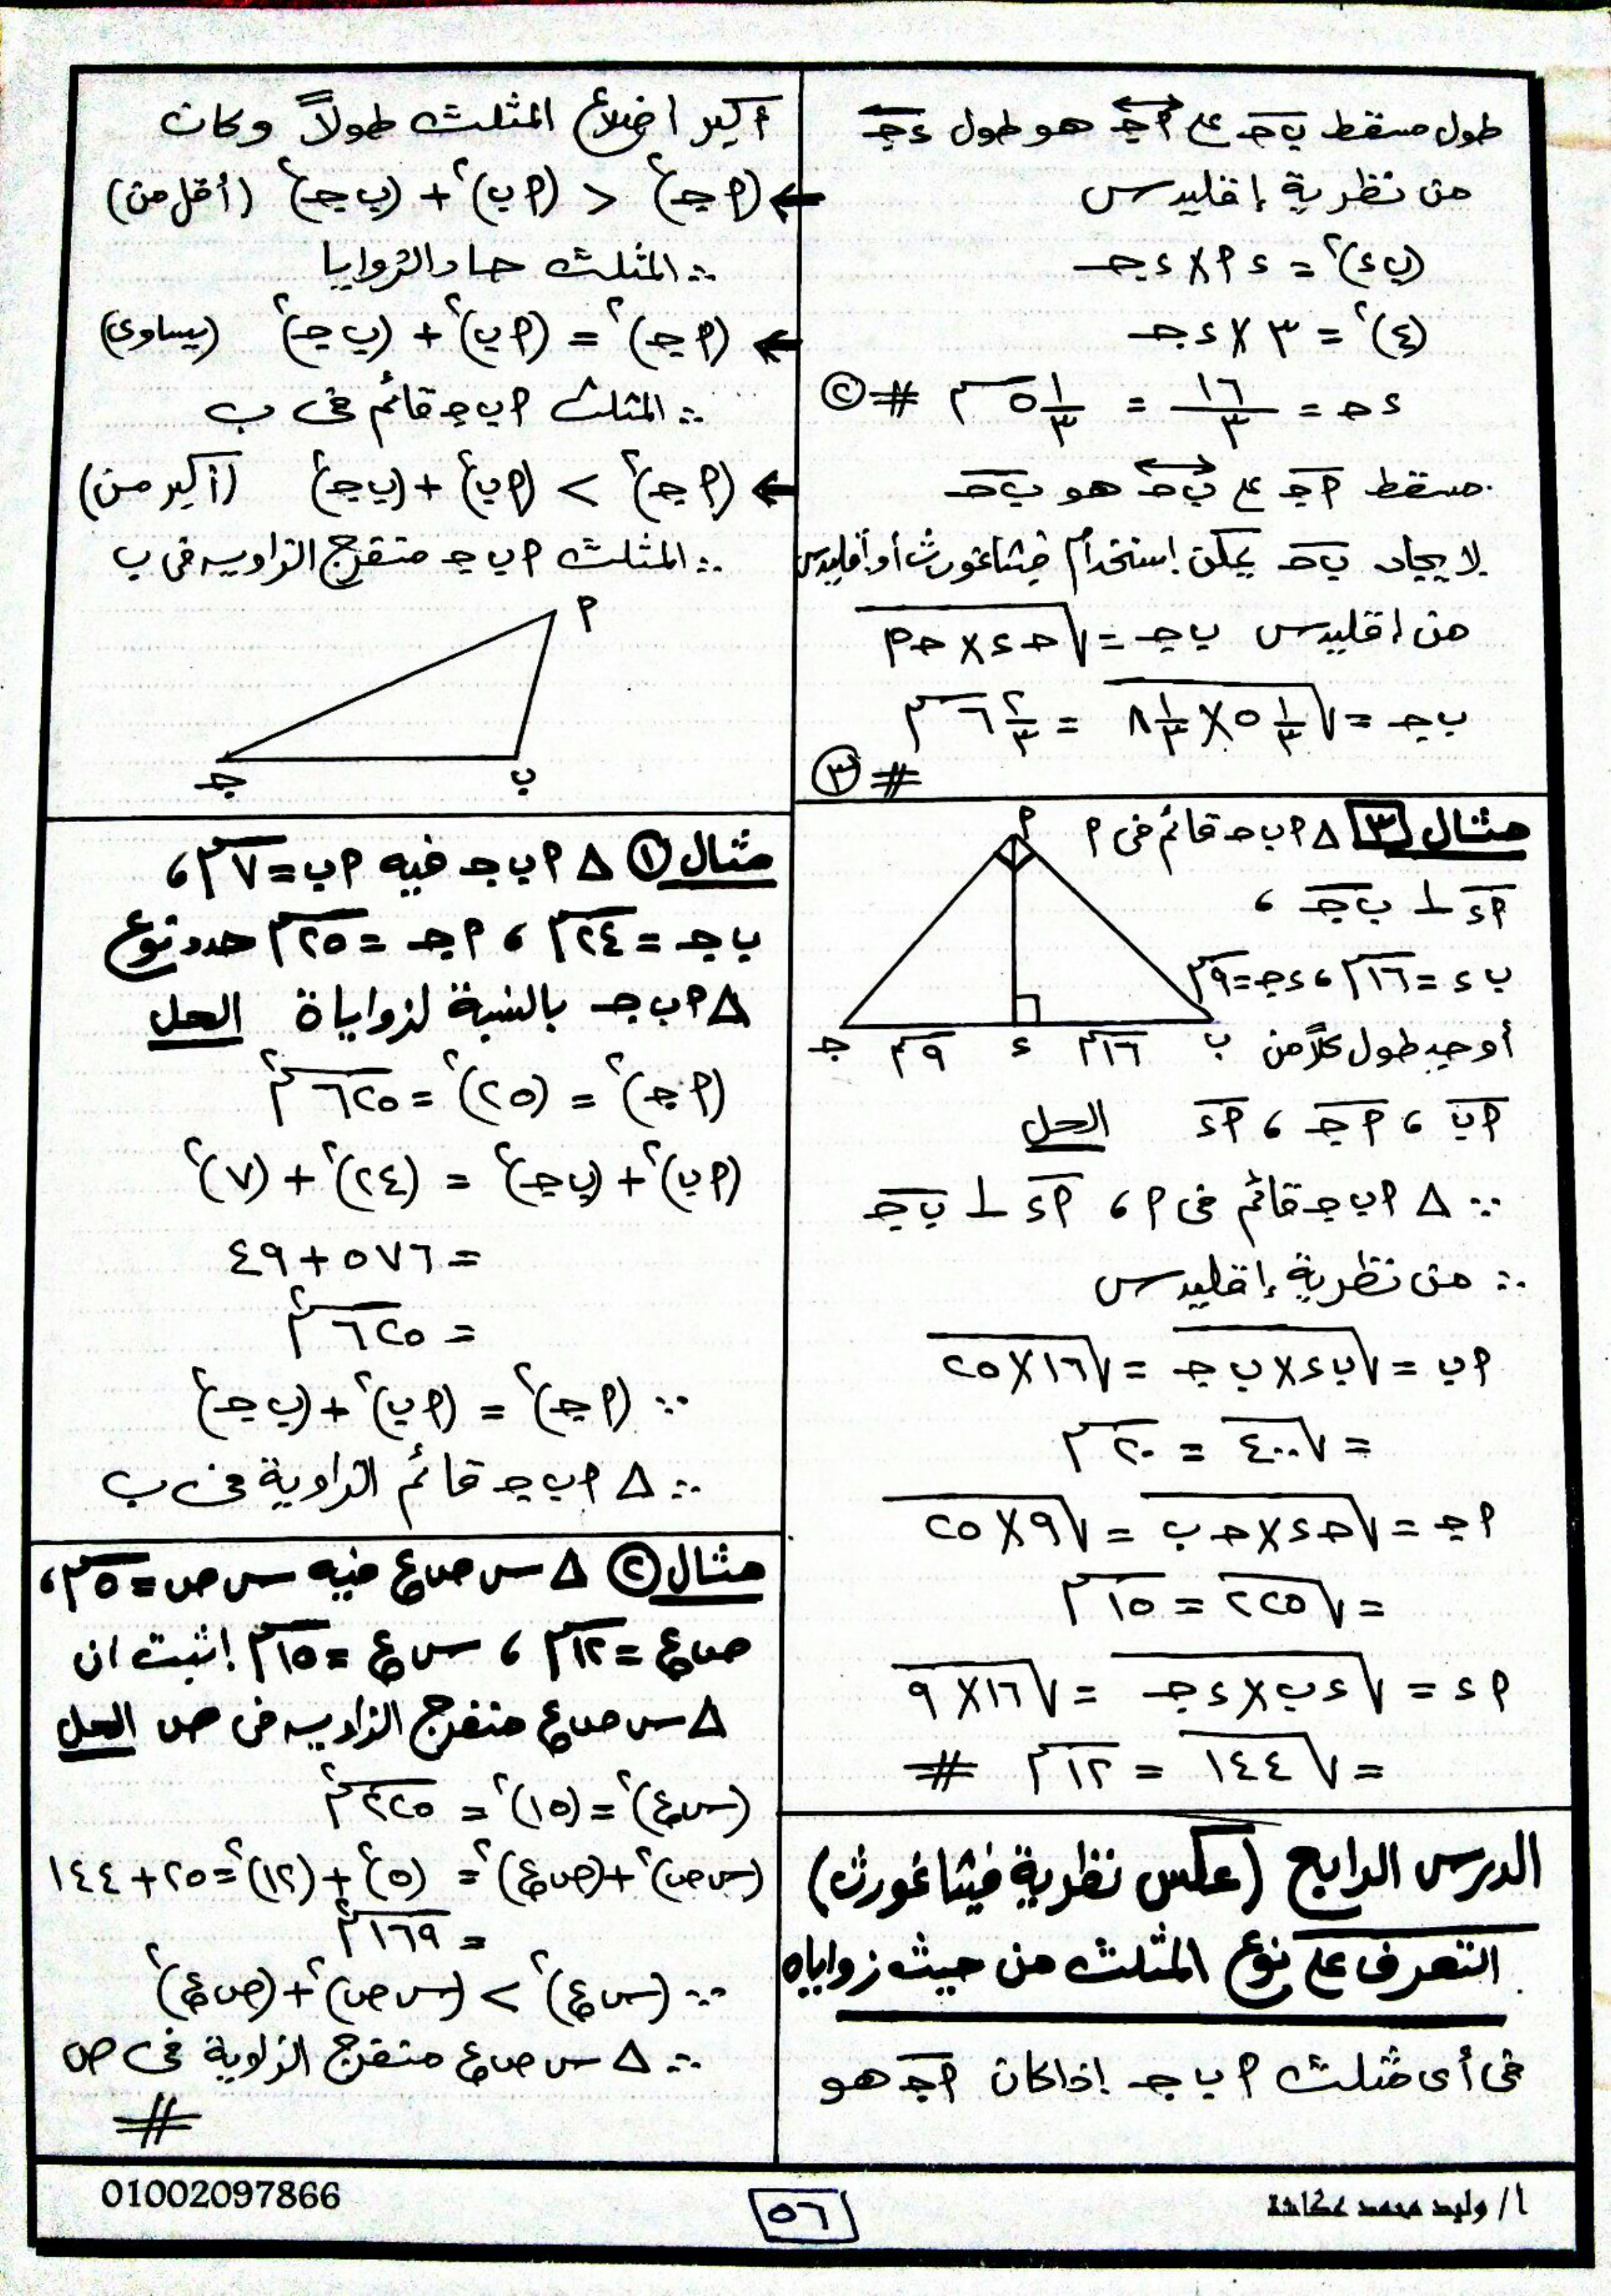 طول مسقط ب جـ على أ جـ هو طول ء جـ
من نظرية إقليدس
(ب ء)٢ = ء أ × ء جـ
(٤)٢ = ٣ × ء جـ
ء جـ = ١٦/٣ = ٥ ١/٣ سم # ٢
مسقط أ جـ على ب جـ هو ب جـ
لإيجاد ب جـ يمكن إستخدام فيثاغورث أو أقليدس
من اقليدس ب جـ = √جـ ء × جـ أ
ب جـ = √٥ ١/٣ × ٨ ١/٣ = ٦ ٢/٣ سم
# ٣
مثال ٣ △ أ ب جـ قائم فى أ
أ ء ⊥ ب جـ ،
ب ء = ١٦سم ، ء جـ = ٩سم
أوجد طول كلاً من
أ ب ، أ جـ ، أ ء الحل
أ
ب ١٦سم ء ٩سم جـ
∵ △ أ ب جـ قائم فى أ ، أ ء ⊥ ب جـ
∴ من نظرية إقليدس
أ ب = √ب ء × ب جـ = √١٦ × ٢٥
= √٤٠٠ = ٢٠ سم
أ جـ = √جـ ء × جـ ب = √٩ × ٢٥
= √٢٢٥ = ١٥ سم
أ ء = √ء ب × ء جـ = √١٦ × ٩
= √١٤٤ = ١٢ سم #
الدرس الرابع (عكس نظرية فيثاغورث)
التعرف على نوع المثلث من حيث زواياه
فى أى مثلث أ ب جـ إذا كان أ جـ هو
أكبر اضلاع المثلث طولاً وكان
← (أ جـ)٢ < (أ ب)٢ + (ب جـ)٢ (أقل من)
∴ المثلث حاد الزوايا
← (أ جـ)٢ = (أ ب)٢ + (ب جـ)٢ (يساوى)
∴ المثلث أ ب جـ قائم فى ب
← (أ جـ)٢ > (أ ب)٢ + (ب جـ)٢ (أكبر من)
∴ المثلث أ ب جـ منفرج الزاويه فى ب
أ
ب جـ
مثال ١ △ أ ب جـ فيه أ ب = ٧سم ،
ب جـ = ٢٤سم ، أ جـ = ٢٥سم حدد نوع
△ أ ب جـ بالنسبة لزواياة الحل
(أ جـ)٢ = (٢٥)٢ = ٦٢٥ سم٢
(أ ب)٢ + (ب جـ)٢ = (٢٤)٢ + (٧)٢
= ٥٧٦ + ٤٩
= ٦٢٥ سم٢
∵ (أ جـ)٢ = (أ ب)٢ + (ب جـ)٢
∴ △ أ ب جـ قائم الزاوية فى ب
مثال ٢ △ س ص ع فيه س ص = ٥سم ،
ص ع = ١٢سم ، س ع = ١٥سم إثبت ان
△ س ص ع منفرج الزاويه فى ص الحل
(س ع)٢ = (١٥)٢ = ٢٢٥ سم٢
(س ص)٢ + (ص ع)٢ = (٥)٢ + (١٢)٢ = ٢٥ + ١٤٤
= ١٦٩ سم٢
∵ (س ع)٢ > (س ص)٢ + (ص ع)٢
∴ △ س ص ع منفرج الزاوية فى ص
#
أ/ وليد محمد عكاشة
٥٦
01002097866